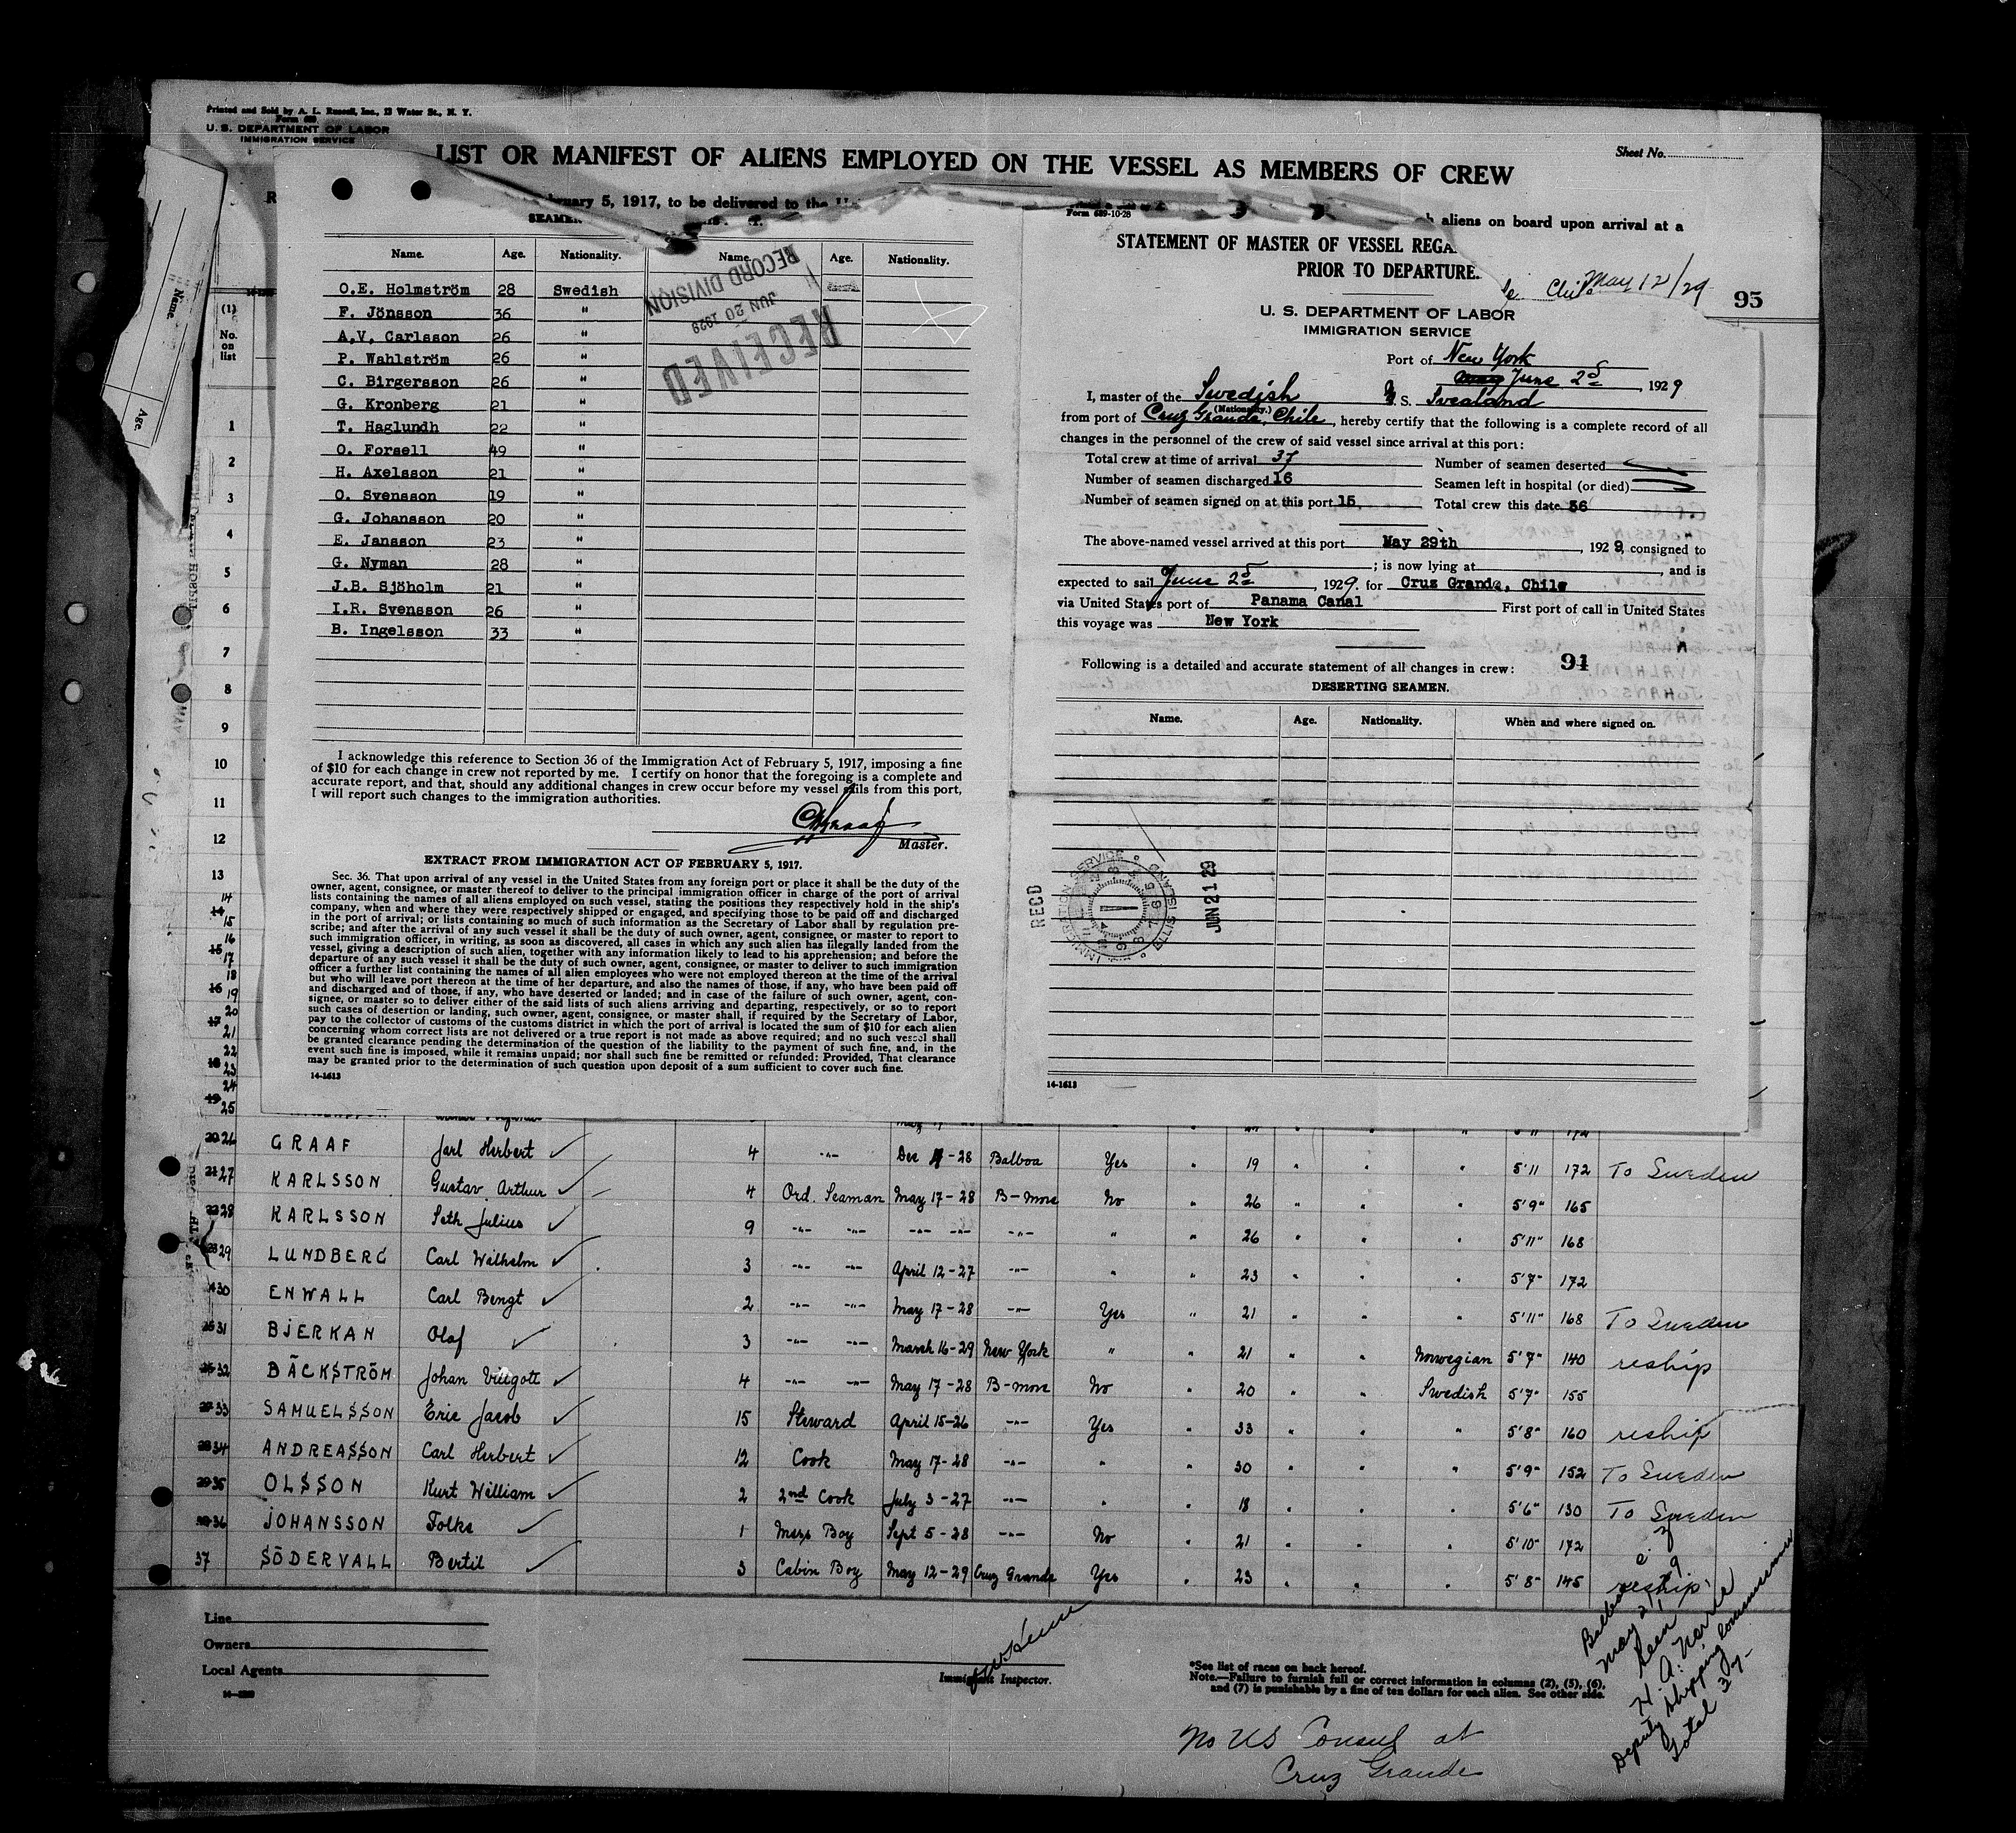 Printed and Sold by A. L. Russell, Inc., 13 Water St., N. Y.
Form 689
U. S. DEPARTMENT OF LABOR
IMMIGRATION SERVICE
Sheet No.
LIST OR MANIFEST OF ALIENS EMPLOYED ON THE VESSEL AS MEMBERS OF CREW
bruary 5, 1917, to be delivered to the U.
aliens on board upon arrival at a
Chile May 12/29
95
Name.
Age.
(1)
No.
on
list
SEAMEN
Name. Age. Nationality. Name. Age. Nationality.
O.E. Holmström 28 Swedish
F. Jönsson 36 "
A,V, Carlsson 26 "
P. Wahlström 26 "
C. Birgersson 26 "
G. Kronberg 21 "
T. Haglundh 22 "
O. Forsell 49 "
H. Axelsson 21 "
O. Svensson 19 "
G. Johansson 20 "
E. Jansson 23 "
G. Nyman 28 "
J.B. Sjöholm 21 "
I.R. Svensson 26 "
B. Ingelsson 33 "
RECEIVED
JUN 20 1929
RECORD DIVISION
I acknowledge this reference to Section 36 of the Immigration Act of February 5, 1917, imposing a fine
of $10 for each change in crew not reported by me. I certify on honor that the foregoing is a complete and
accurate report, and that, should any additional changes in crew occur before my vessel sails from this port,
I will report such changes to the immigration authorities.
Master.
EXTRACT FROM IMMIGRATION ACT OF FEBRUARY 5, 1917.
Sec. 36. That upon arrival of any vessel in the United States from any foreign port or place it shall be the duty of the
owner, agent, consignee, or master thereof to deliver to the principal immigration officer in charge of the port of arrival
lists containing the names of all aliens employed on such vessel, stating the positions they respectively hold in the ship's
company, when and where they were respectively shipped or engaged, and specifying those to be paid off and discharged
in the port of arrival; or lists containing so much of such information as the Secretary of Labor shall by regulation pre-
scribe; and after the arrival of any such vessel it shall be the duty of such owner, agent, consignee, or master to report to
such immigration officer, in writing, as soon as discovered, all cases in which any such alien has illegally landed from the
vessel, giving a description of such alien, together with any information likely to lead to his apprehension; and before the
departure of any such vessel it shall be the duty of such owner, agent, consignee, or master to deliver to such immigration
officer a further list containing the names of all alien employees who were not employed thereon at the time of the arrival
but who will leave port thereon at the time of her departure, and also the names of those, if any, who have been paid off
and discharged and of those, if any, who have deserted or landed; and in case of the failure of such owner, agent, con-
signee, or master so to deliver either of the said lists of such aliens arriving and departing, respectively, or so to report
such cases of desertion or landing, such owner, agent, consignee, or master shall, if required by the Secretary of Labor,
pay to the collector of customs of the customs district in which the port of arrival is located the sum of $10 for each alien
concerning whom correct lists are not delivered or a true report is not made as above required; and no such vessel shall
be granted clearance pending the determination of the question of the liability to the payment of such fine, and, in the
event such fine is imposed, while it remains unpaid; nor shall such fine be remitted or refunded: Provided, That clearance
may be granted prior to the determination of such question upon deposit of a sum sufficient to cover such fine.
14-1613
Form 689-10-28
STATEMENT OF MASTER OF VESSEL REGA
PRIOR TO DEPARTURE.
U. S. DEPARTMENT OF LABOR
IMMIGRATION SERVICE
Port of New York
June 2d, 1929
I, master of the Swedish M S. Svealand
(Nationality.)
from port of Cruz Grande, Chile, hereby certify that the following is a complete record of all
changes in the personnel of the crew of said vessel since arrival at this port:
Total crew at time of arrival 37 Number of seamen deserted
Number of seamen discharged 16 Seamen left in hospital (or died)
Number of seamen signed on at this port 15 Total crew this date 36
The above-named vessel arrived at this port May 29th, 1929, consigned to
; is now lying at , and is
expected to sail June 2d, 1929. for Cruz Grande, Chile
via United States port of Panama Canal First port of call in United States
this voyage was New York
Following is a detailed and accurate statement of all changes in crew: 94
DESERTING SEAMEN.
Name. Age. Nationality. When and where signed on.
RECD
IMMIGRATION SERVICE ELLIS ISLAND
JUN 21 29
14-1613
1
2
3
4
5
6
7
8
9
10
11
12
13
14
15
16
17
18
19
20
21
22
23
24
25
26 GRAAF Jarl Herbert 4 -"- Dec -28 Balboa Yes " 19 " " " 5'11 172 To Sweden
27 KARLSSON Gustav Arthur 4 Ord. Seaman May 17-28 B-more No " 26 " " " 5'9" 165
28 KARLSSON Seth Julius 9 -"- -"- -"- -"- -"- " " 26 " " " 5'11" 168
29 LUNDBERG Carl Wilhelm 3 -"- -"- April 12-27 -"- " " 23 " " " 5'7" 172
30 ENWALL Carl Bengt 2 -"- -"- May 17-28 -"- Yes " 21 " " " 5'11" 168 To Sweden
31 BJERKAN Olaf 3 -"- -"- March 16-29 New York " " 21 " " Norwegian 5'7" 140 reship
32 BÄCKSTRÖM Johan Villgott 4 -"- -"- May 17-28 B-more No " 20 " " Swedish 5'7" 155
33 SAMUELSSON Eric Jacob 15 Steward April 15-26 -"- Yes " 33 " " " 5'8" 160 reship
34 ANDREASSON Carl Herbert 12 Cook May 17-28 -"- " " 30 " " " 5'9" 152 To Sweden
35 OLSSON Kurt William 2 2nd Cook July 3-27 -"- " " 18 " " " 5'6" 130 To Sweden
36 JOHANSSON Folke 1 Mess Boy Sept 5-28 -"- No " 21 " " " 5'10" 172
37 SÖDERVALL Bertil 3 Cabin Boy May 12-29 Cruz Grande Yes " 23 " " " 5'8" 145 reship
Line
Owners
Local Agents
Immigrant Inspector.
*See list of races on back hereof.
Note.—Failure to furnish full or correct information in columns (2), (5), (6),
and (7) is punishable by a fine of ten dollars for each alien. See other side.
Balboa C. Z.
May 21, 29
Seen
Deputy Shipping Commissioner
Total 37
No US Consul at
Cruz Grande